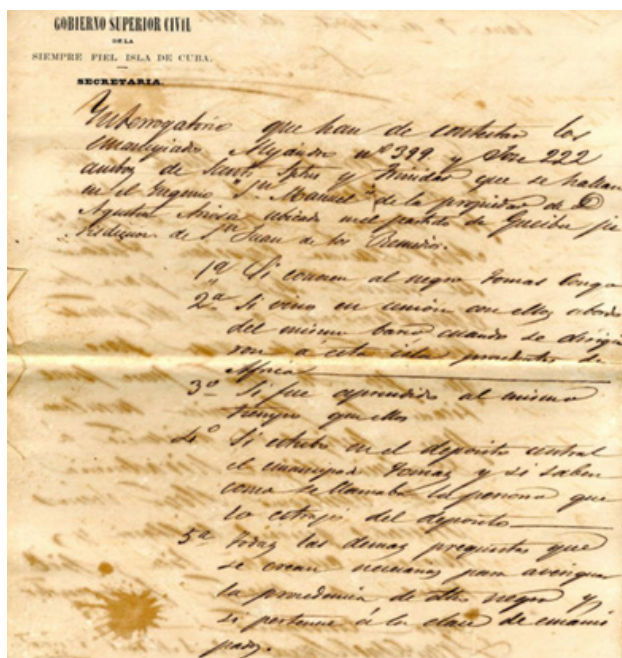 GOBIERNO SUPERIOR CIVIL
DE LA
SIEMPRE FIEL ISLA DE CUBA.
SECRETARIA.
Interrogatorio que han de contestar los
emancipados Alejandro nº 399 y Jose 222
ambos de Santi Sptus y Trinidad que se hallan
en el Ingenio "Sn Manuel" de la propiedad de D
Agustin ubicado en el partido de Gueiba ju
risdiccion de Sn Juan de los Remedios.
1ª Si conocen al negro Tomas Congo
2ª Si vino en union con ellos a bordo
del mismo barco cuando se dirigie
ron á esta isla procedentes de
Africa
3º Si fue aprendido al mismo
tiempo que ellos
4º Si estubo en el deposito central
el emancipado Tomas y si saben
como se llamaba la persona que
lo estrajo del deposito
5ª Todas las demas preguntas que
se crean necesarias para averiguar
la procedencia de dho negro y
si pertenece á la clase de emanci
pados.